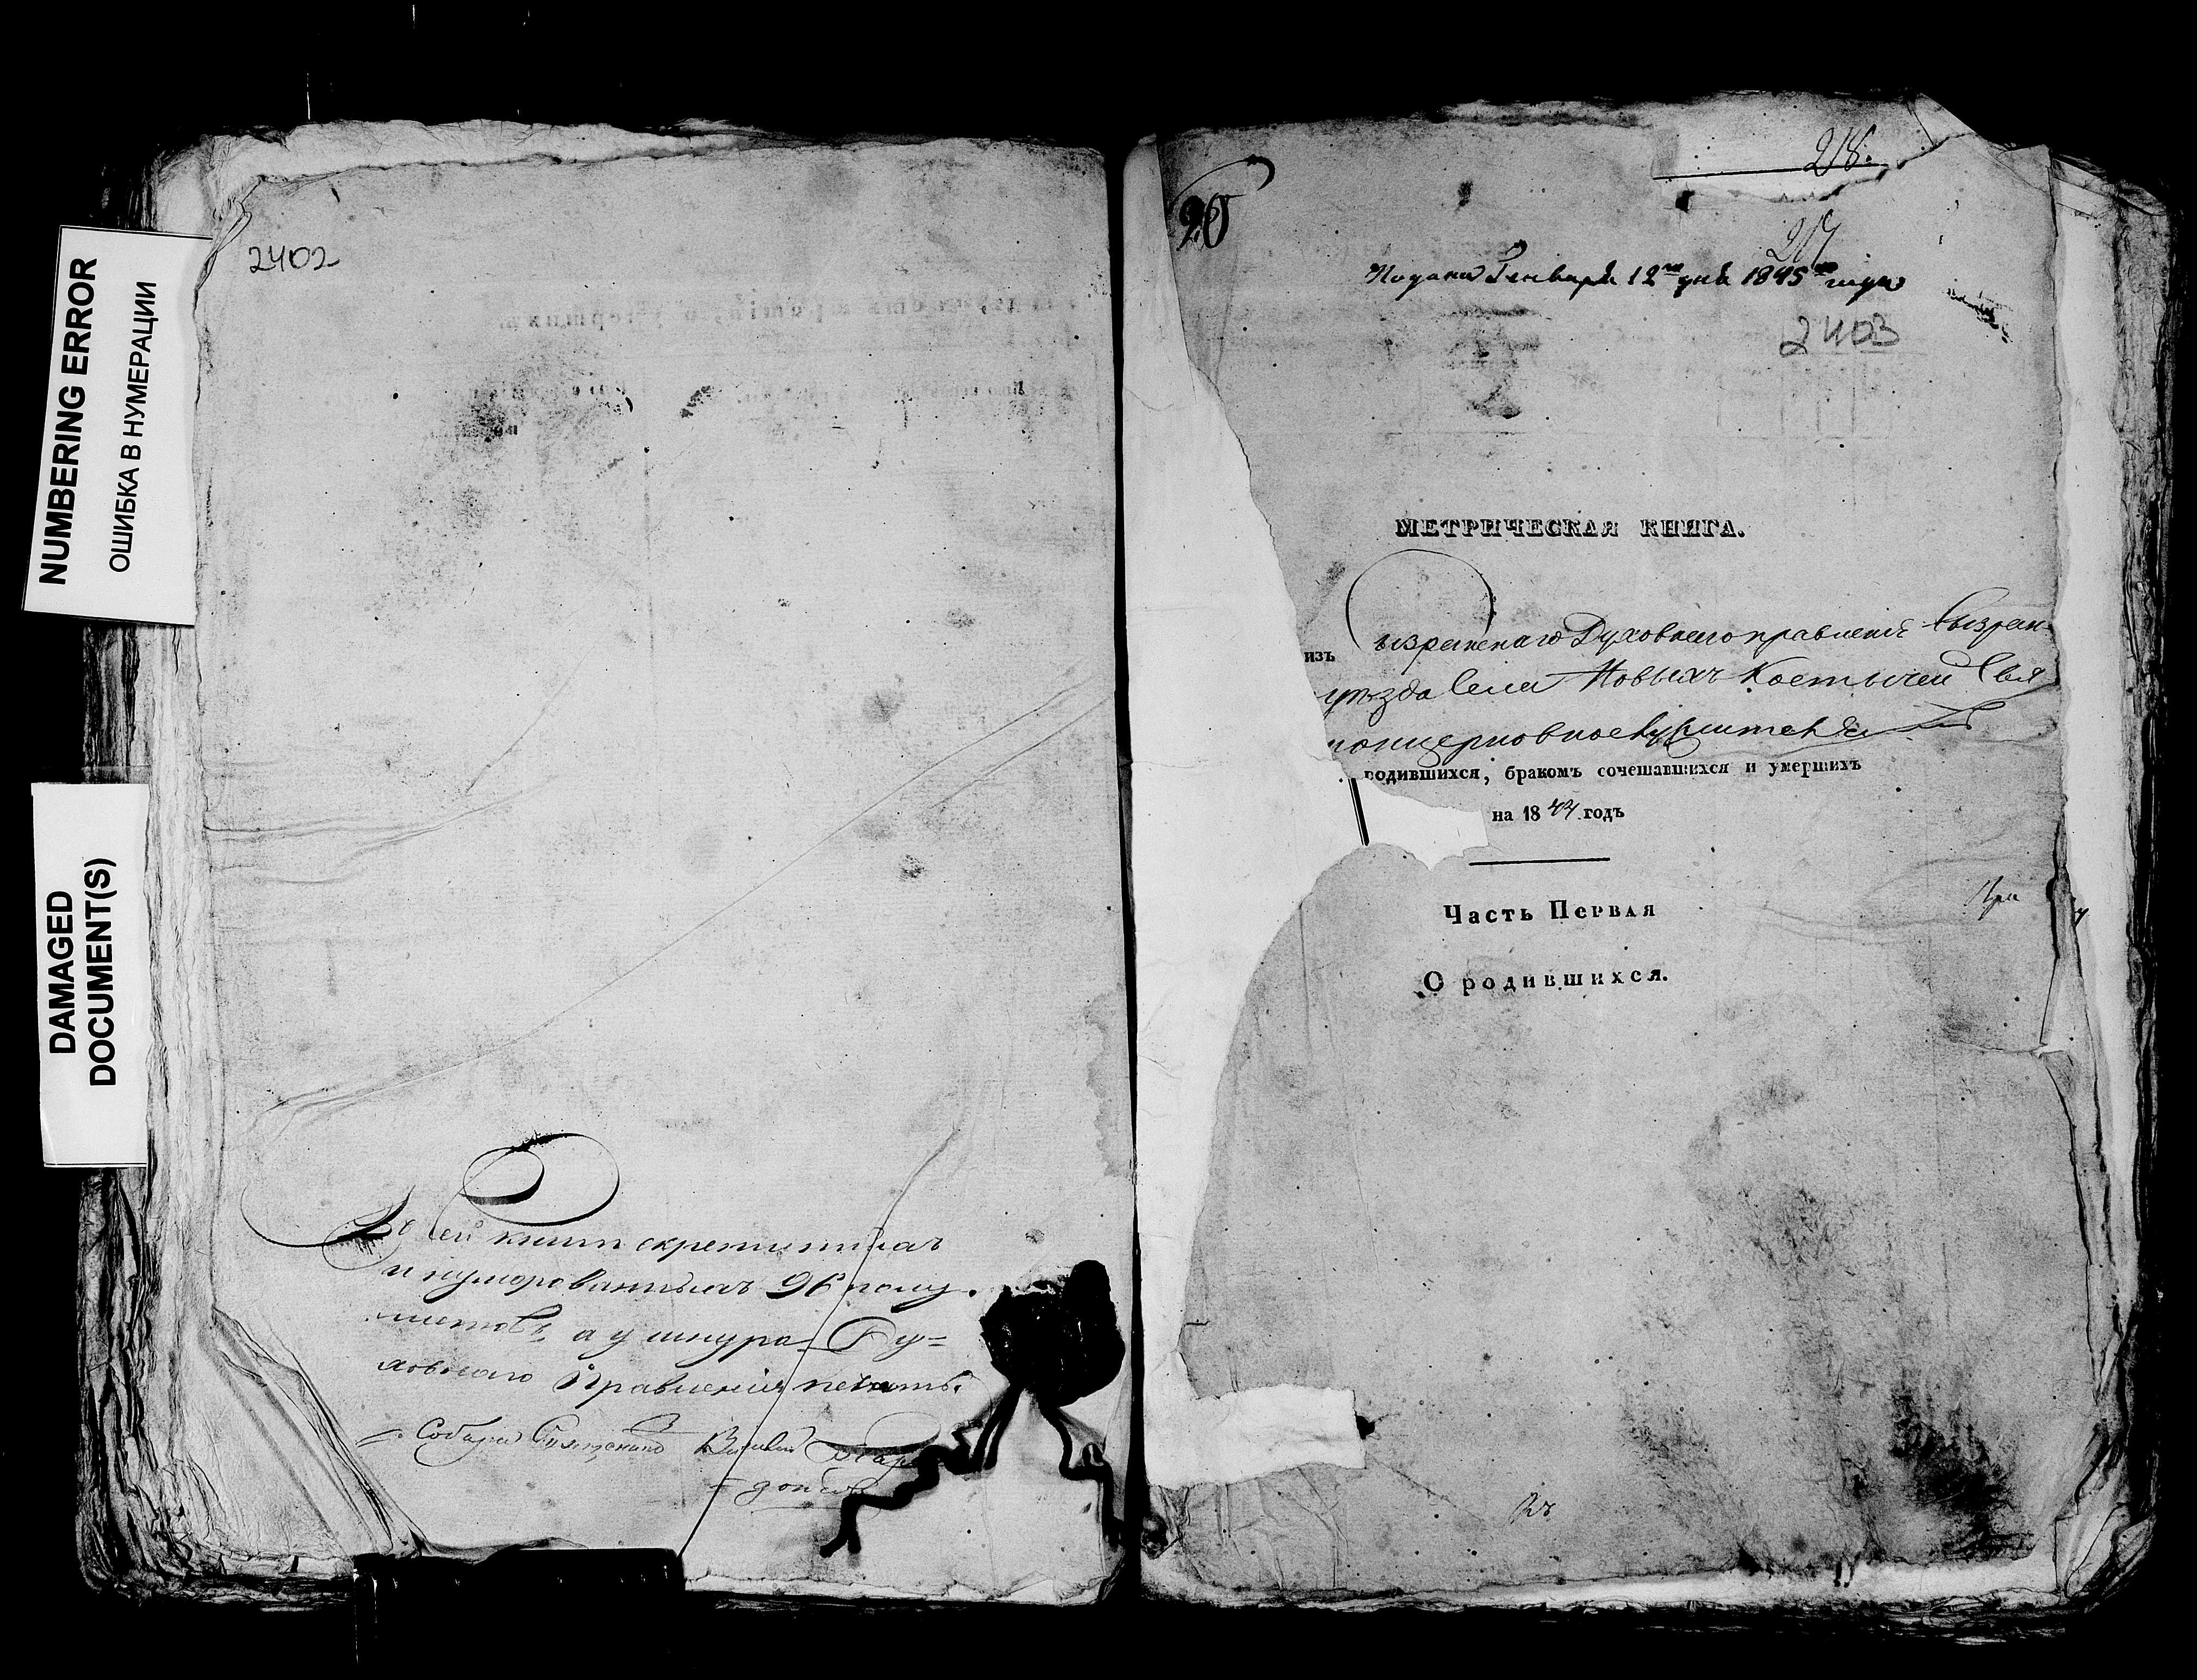 NUMBERING ERROR
ОШИБКА В НУМЕРАЦИИ
DAMAGED
DOCUMENT(S)
2402
Во сей книги скрепленныхъ
и нумерованныхъ 96 полу
листовъ, а у шнура Ду=
ховнаго Правленія печать.
Соборный Священникъ
218.
217
Подана Генваря 12го дня 1845го года
2403
МЕТРИЧЕСКАЯ КНИГА.
изъ Сызранскаго Духовнаго правленія Сызран-
уѣзда Села Новыхъ Костычей
родившихся, бракомъ сочетавшихся и умершихъ
на 1844 годъ
Часть Первая
О родившихся.
При